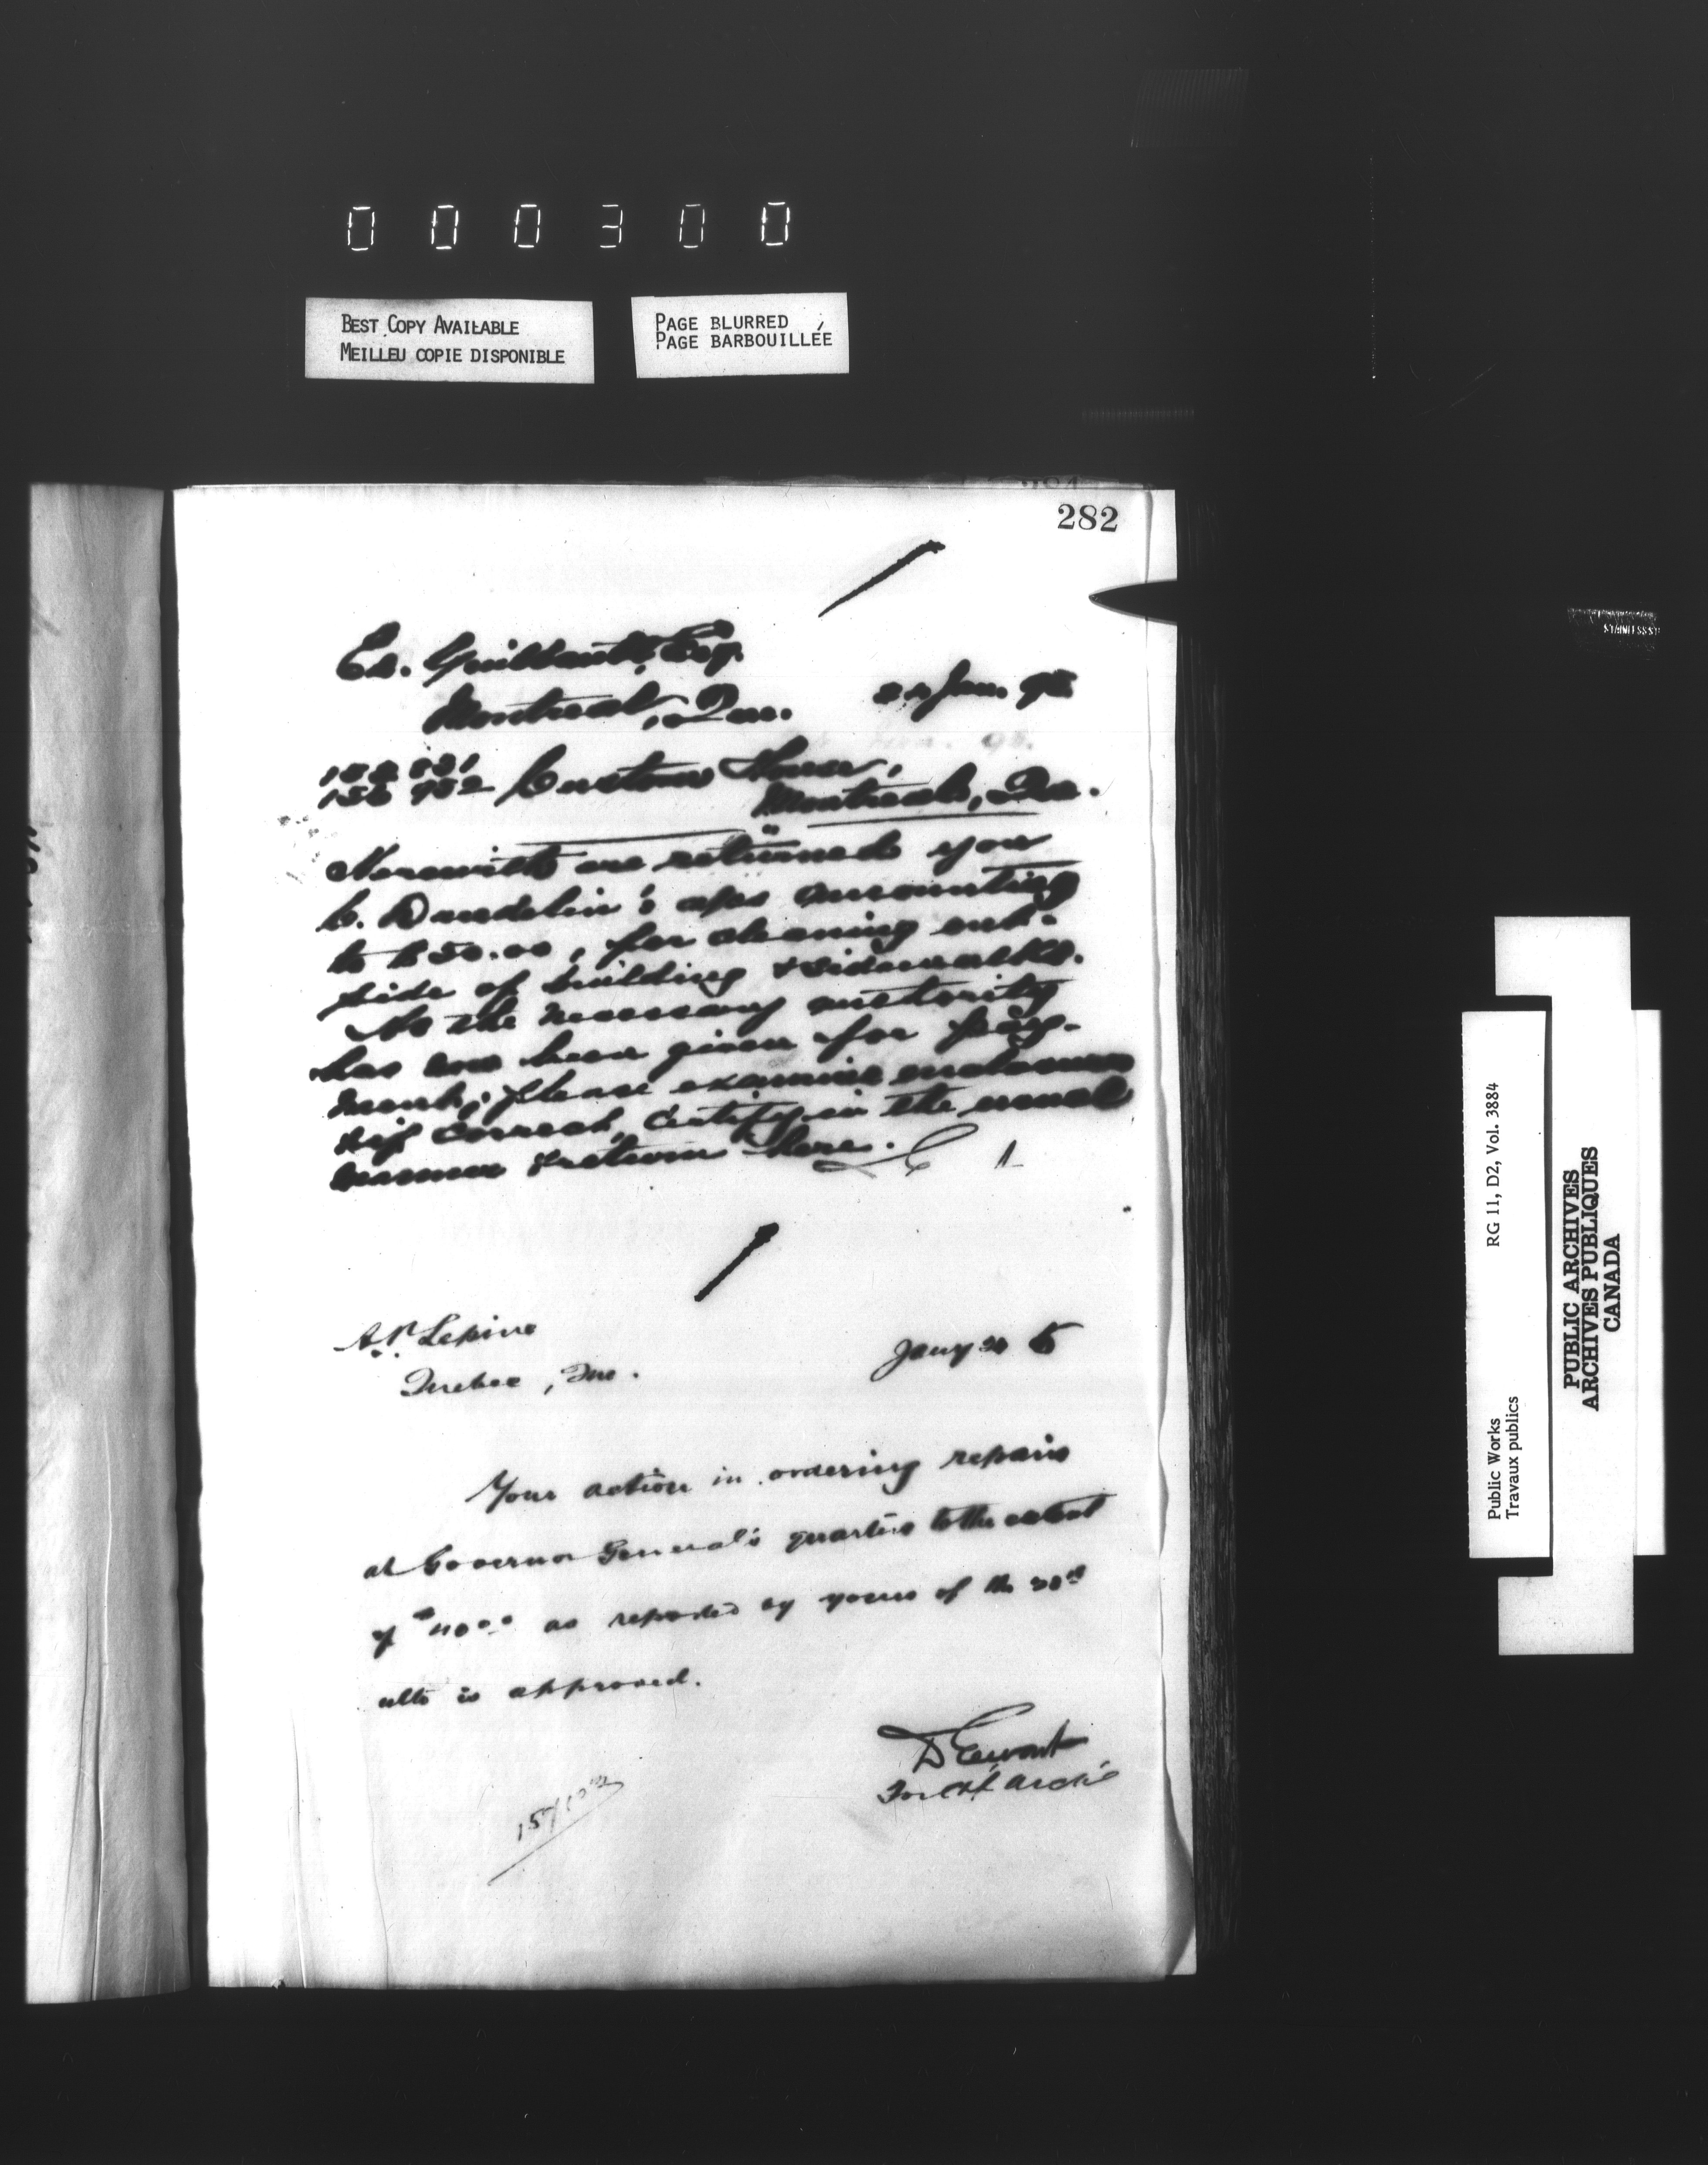 000300
BEST COPY AVAILABLE
MEILLEU COPIE DISPONIBLE
PAGE BLURRED
PAGE BARBOUILLÉE
282
Ed. Esq.
Montreal, Que. Jan.
Custom House,
Montreal, Que.
Herewith are returned you
C. Dandelin's a/cs amounting
to $50.00, for cleaning out-
side of building & sidewalks.
As the necessary authority
has now been given for pay-
ment, please examine enclosures
& if correct, certify in the usual
manner & return here.
Lepine
Quebec, Que.
Jany
Your action in ordering repairs
at Governor General's quarters to the extent
of as reported by yours of the
ulto is approved.
D Ewart
For Chf Archt
RG 11, D2, Vol. 3884
Public Works
Travaux publics
PUBLIC ARCHIVES
ARCHIVES PUBLIQUES
CANADA